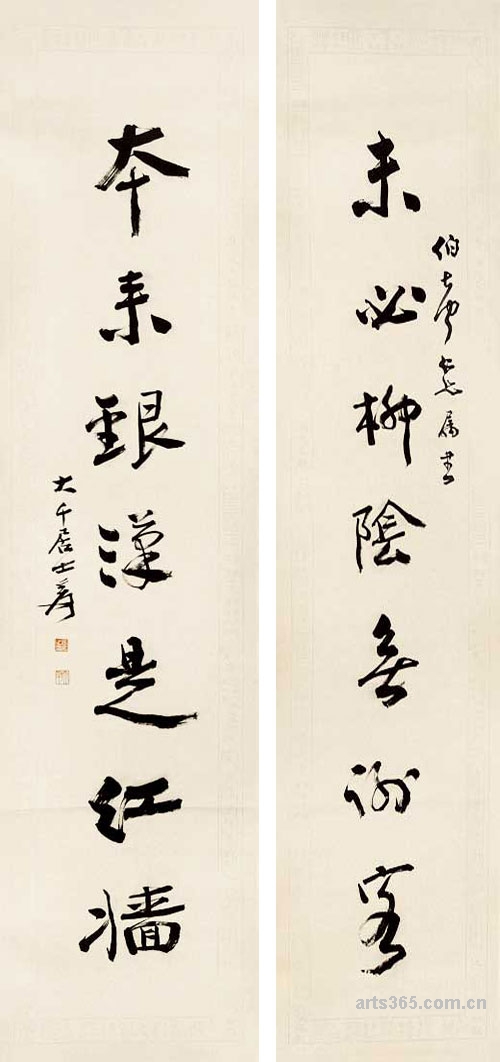 未必柳陰無謝客
伯屬書
本來銀漢是紅牆
大千居士爰
arts365.com.cn